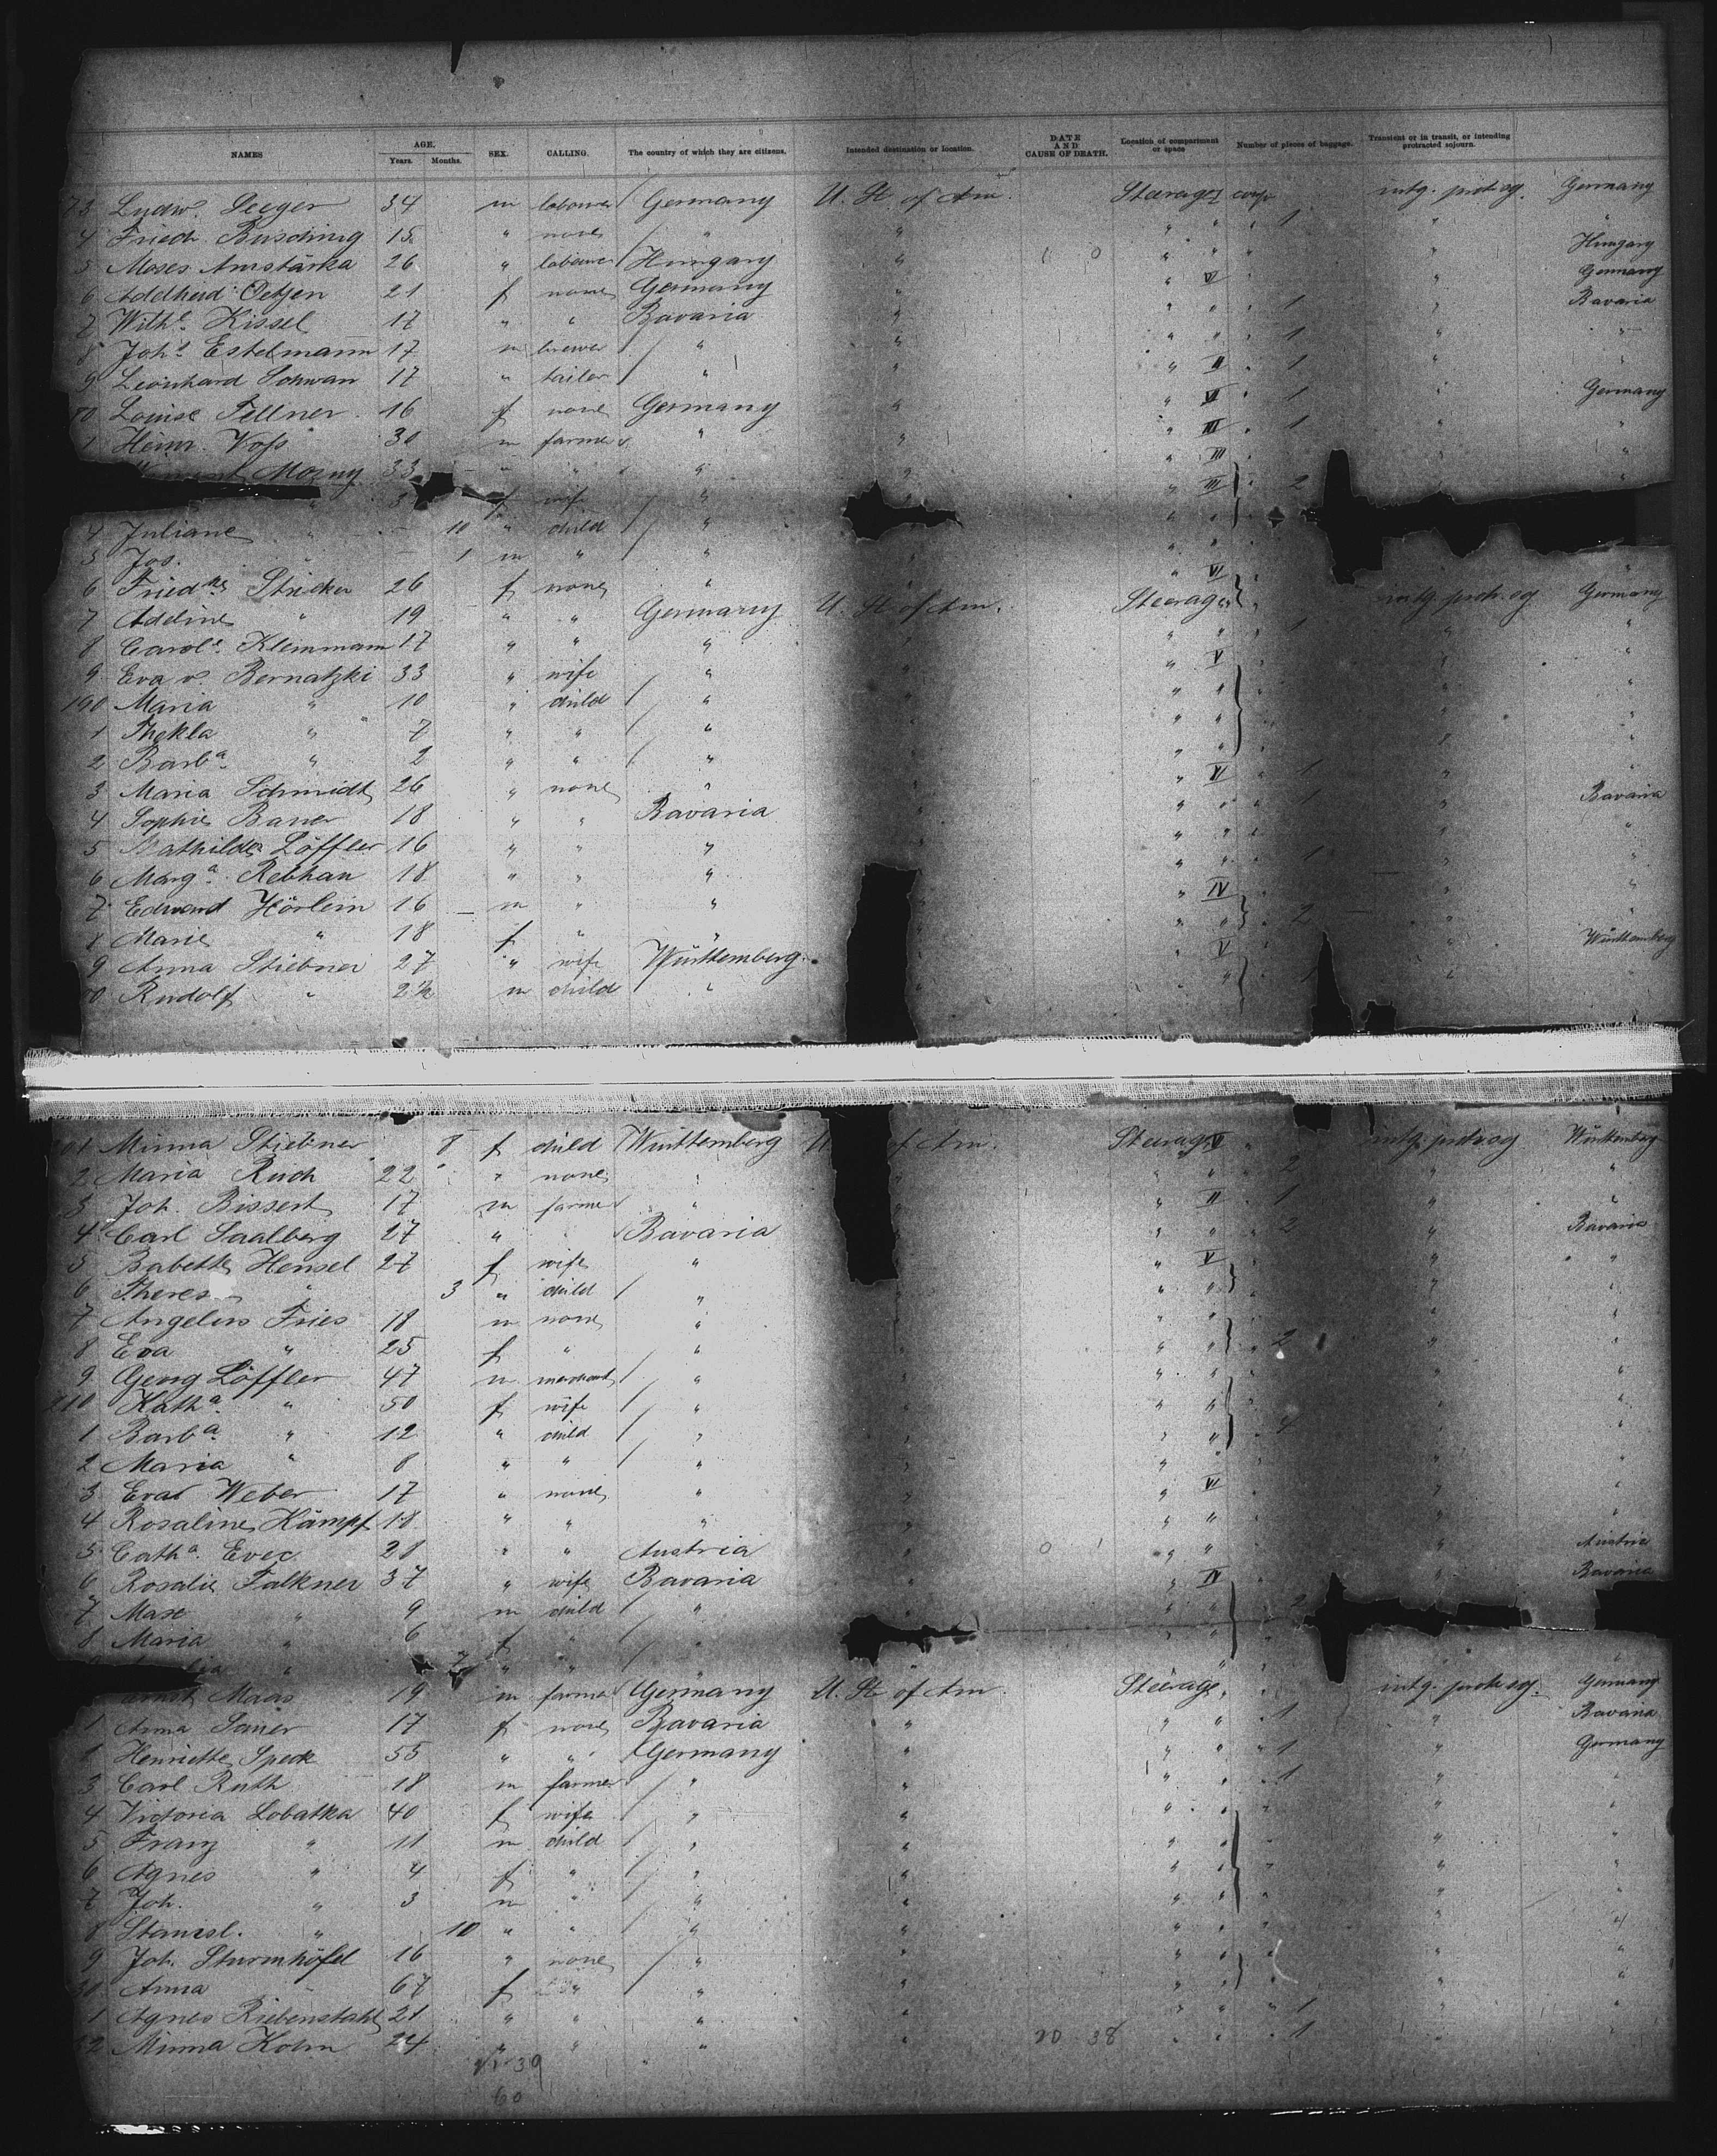 NAMES AGE. SEX. CALLING. The country of which they are citizens. Intended destination or location. DATE AND CAUSE OF DEATH. Location of compartment or space Number of pieces of baggage. Transient or in transit, or intending protracted sojourn.
Years. Months.
73 Ludw. Seeger 34 m labourer Germany U. St. of Am. Steerage I intg. prot. sog. Germany
4 Friedr. Busching 15 " none " " " " " 1 " "
5 Moses Amstärka 26 " labourer Hungary " " " " " Hungary
6 Adelheid Oetjen 21 f none Germany " " VI " " Germany
7 Withe. Kissel 17 " " Bavaria " " " " 1 " Bavaria
8 Johs. Estelmann 17 m brewer " " " " " 1 " "
9 Leonhard Schwan 17 " tailor " " " II " 1 " "
80 Louise Fellner 16 f none Germany " " VI " 1 " Germany
1 Heinr. Voss 30 m farmer " " " III " 1 " "
Morny 33 " " " " " III " "
" 3 f wife " " III " 2 "
4 Juliane " - 10 " child " " "
5 Jos. - 1 m " " " "
6 Friedke Stricker 26 f none " " VI
7 Adeline " 19 " " Germany U. St. of Am. Steerage " intg. prot. sog Germany
8 Carole. Klemmann 17 " " " " " " 1 " "
9 Eva v. Bernatzki 33 " wife " " " V " " "
190 Maria " 10 " child " " " " " " "
1 Thekla " 7 " " " " " " " " "
2 Barba. " 2 " " " " " " " " "
3 Maria Schmidt 26 " none " " " VI " 1 " "
4 Sophie Bauer 18 " " Bavaria " " " " 1 " Bavaria
5 Mathilde Löffler 16 " " " " " " " "
6 Marga. Rebhan 18 " " " " " " 1 " "
7 Edward Hörlein 16 m " " " " IV " " "
8 Marie " 18 f " " " " " " 2 " "
9 Anna Stiebner 27 " wife Württemberg " " V " " Württemberg
0 Rudolf " 2½ m child " " " " 1 " "
01 Minna Stiebner 8 f child Württemberg U of Am. Steerage V intg. prot. sog Württemberg
2 Maria Ruch 22 " none " " " " 2 " "
3 Joh. Bissert 17 m farmer " " " II " 1 " "
4 Carl Saalberg 27 " Bavaria " " " 2 " Bavaria
5 Babette Hensel 27 f wife " " V " "
6 Theres " 3 " child " " " " "
7 Angelus Fries 18 m none " " " " " "
8 Eva " 25 f " " " " " " 2 " "
9 Georg Löffler 47 m merchant " " " " " "
210 Katha. " 50 f wife " " " " " "
1 Barba. " 12 " child " " " " 4 " "
2 Maria " 8 " " " " " " " "
3 Eva Weber 17 " none " " " VI " "
4 Rosaline Kämpf 18 " " " " " " " "
5 Catha. Evec 28 " " Austria " " " " Austria
6 Rosalie Falkner 37 " wife Bavaria " " IV " Bavaria
7 Max " 9 m child " " " " 2
8 Maria " 6 f " " " "
" 7 " " "
Ernst Maas 19 m farmer Germany U. St. of Am. Steerage " intg. prot. sog. Germany
1 Anna Sauer 17 f none Bavaria " " " 1 " Bavaria
2 Henriette Speck 55 " " Germany " " " " 1 " Germany
3 Carl Ruth 18 m farmer " " " " 1 " "
4 Victoria Lobatka 40 f wife " " " " " " "
5 Franz " 11 m child " " " " " "
6 Agnes " 4 f " " " " " " " "
7 Joh. " 3 m " " " " " " "
8 Stanisl. " 10 " " " " " " " "
9 Joh. Sturmhöfel 16 " none " " " " " "
30 Anna " 67 f " " " " " " "
1 Agnes Riebenstahl 21 " " " " " " " 1 " "
32 Minna Kohn 24 " " " " 20 38 " " 1
39
60